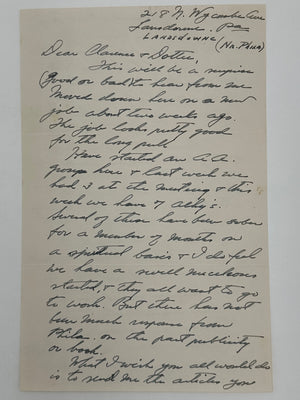 218 N. Wycombe Ave
Lansdowne, Pa
LANSDOWNE
(Nr. Phila)
Dear Clarence & Dottie,
This will be a surprise
(good or bad to hear from me
Moved down here on a new
job about two weeks ago.
The job looks pretty good
for the long pull.
Have started an A.A.
group here & last week we
had 3 at the meeting & this
week we have 7 Alky's.
Several of them have been sober
for a number of months on
a spiritual basis & I do feel
we have a swell nucleous
started, & they all want to go
to work. But there has not
been much response from
Phila. on the past publicity
or book.
What I wish you all would do
is to send me the articles you